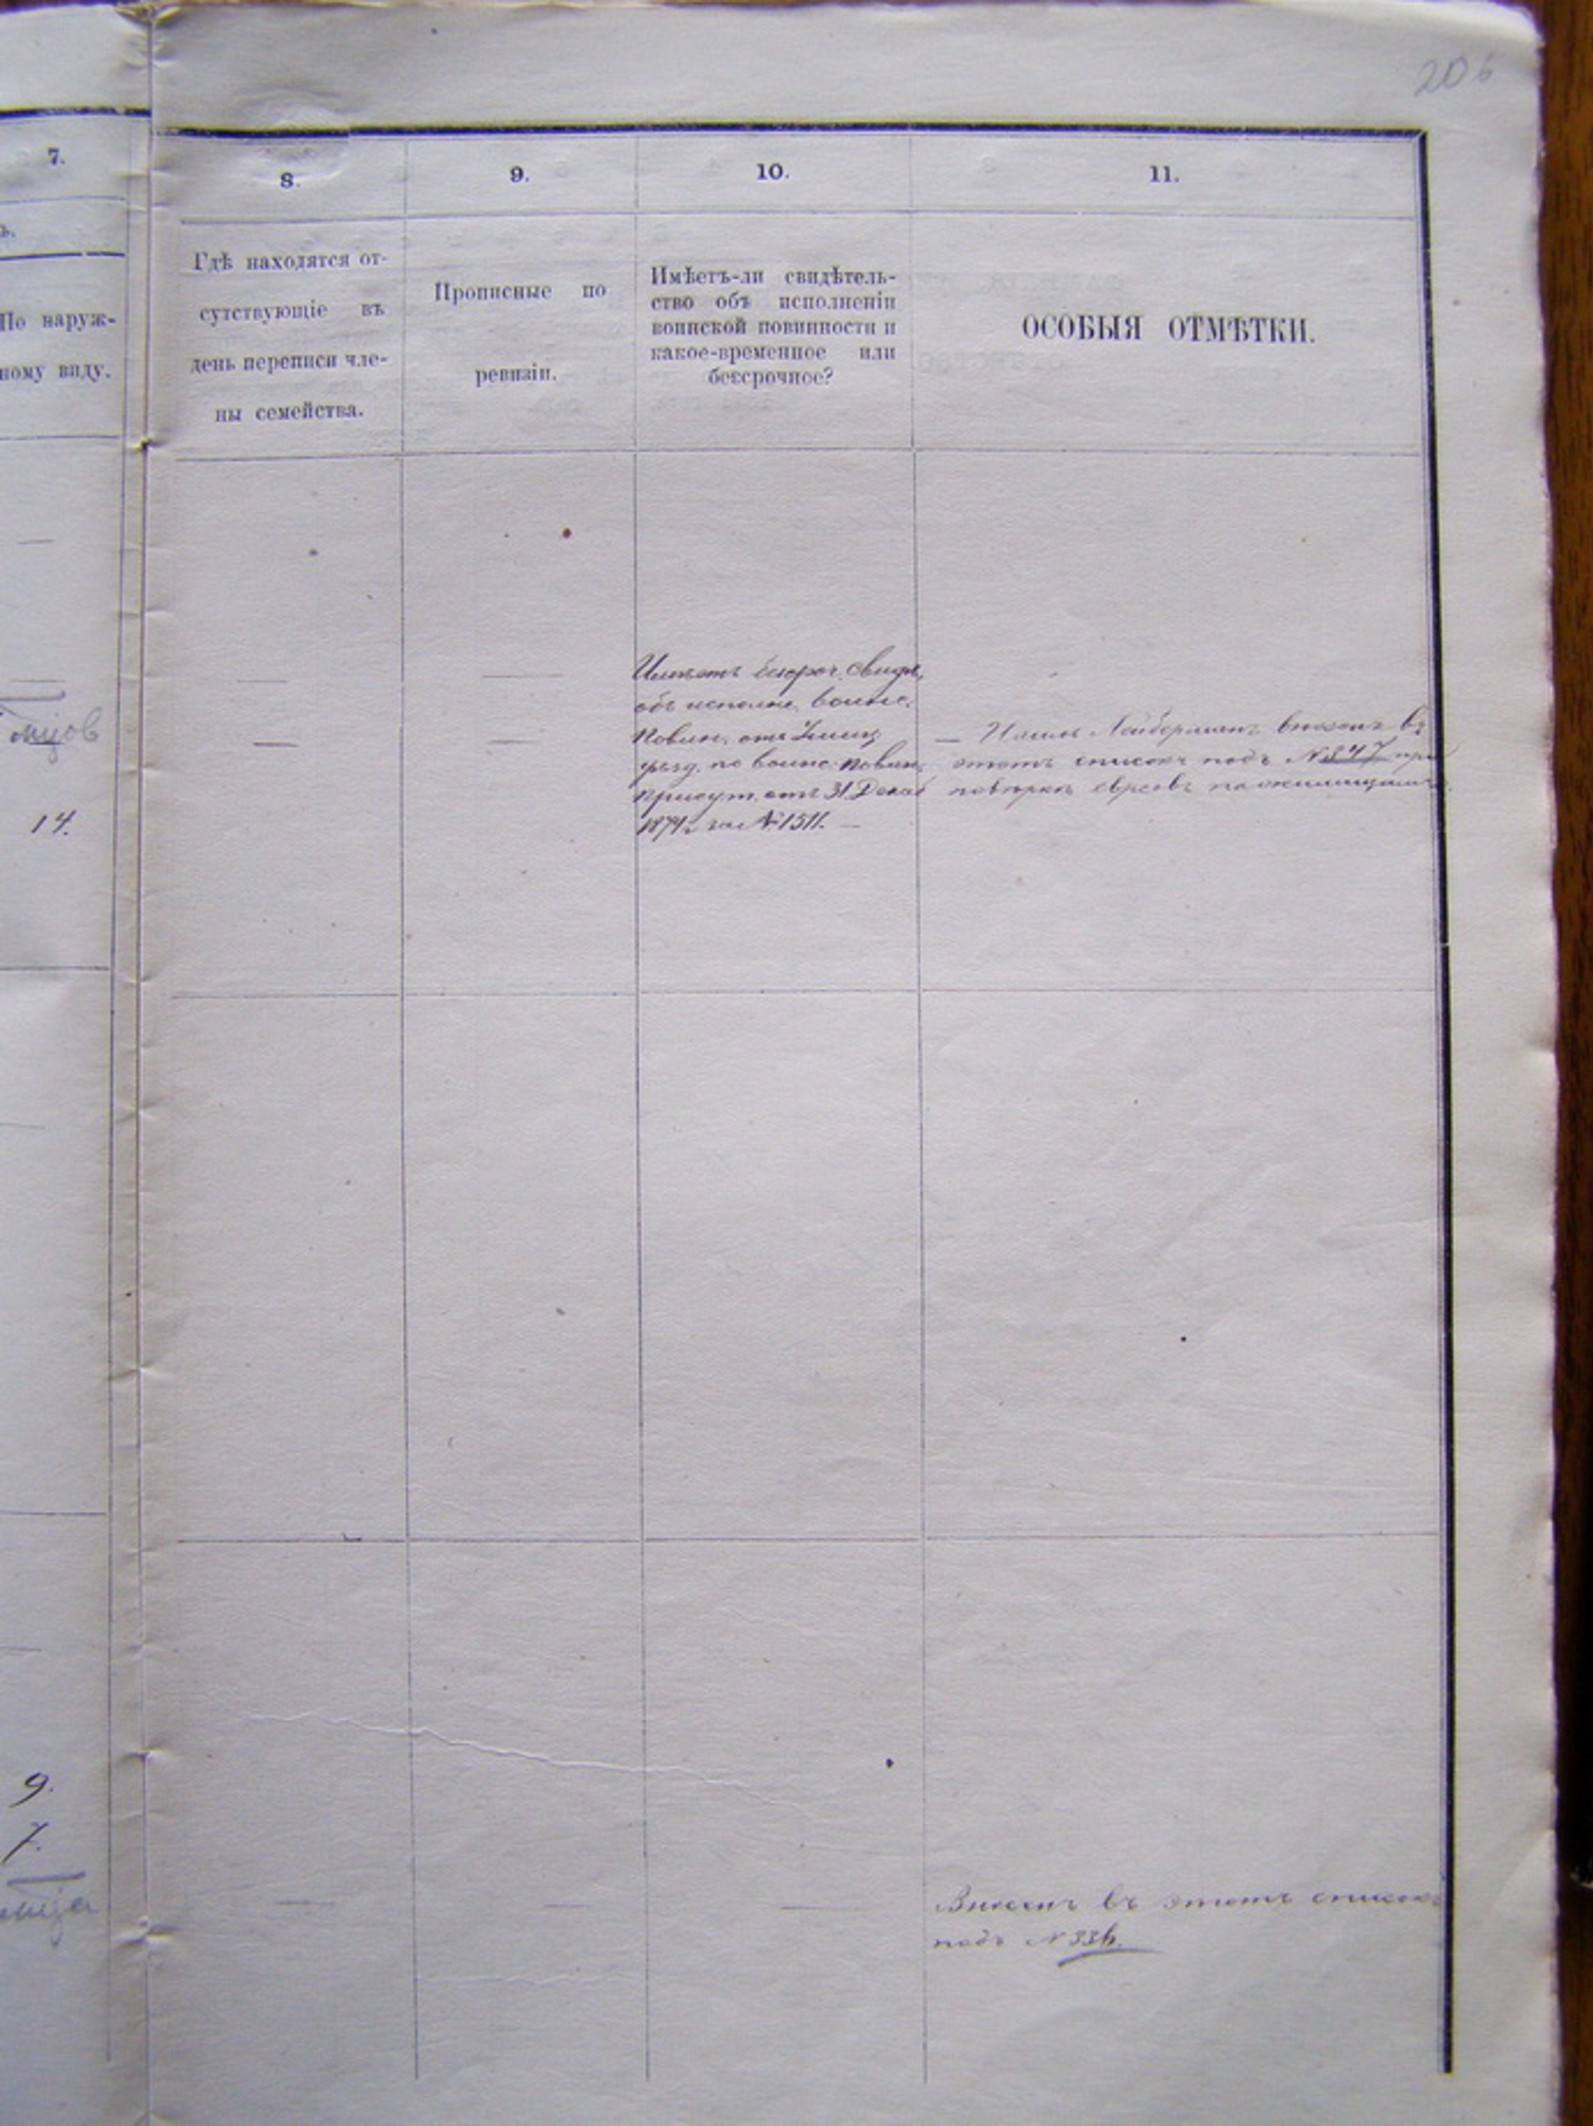 206
7.
8.
9.
10.
11.
ъ.
По наруж-
ному виду.
Гдѣ находятся от-
сутствующіе въ
день переписи чле-
ны семейства.
Прописные по
ревизіи.
Имѣетъ-ли свидѣтель-
ство объ исполненіи
воинской повинности и
какое-временное или
безсрочное?
ОСОБЫЯ ОТМѢТКИ.
14.
Имѣетъ безсроч. свидѣ.
объ исполне. воинс.
Повин. отъ
уѣзд. по воинс. повин.
присут. отъ 31 Декаб
1874 г за № 1511. —
— Лейберманъ внесенъ въ
этотъ списокъ подъ № 347 при
повѣркѣ евреевъ по жилищамъ.
9.
7.
Внесенъ въ этотъ списокъ
подъ № 336.